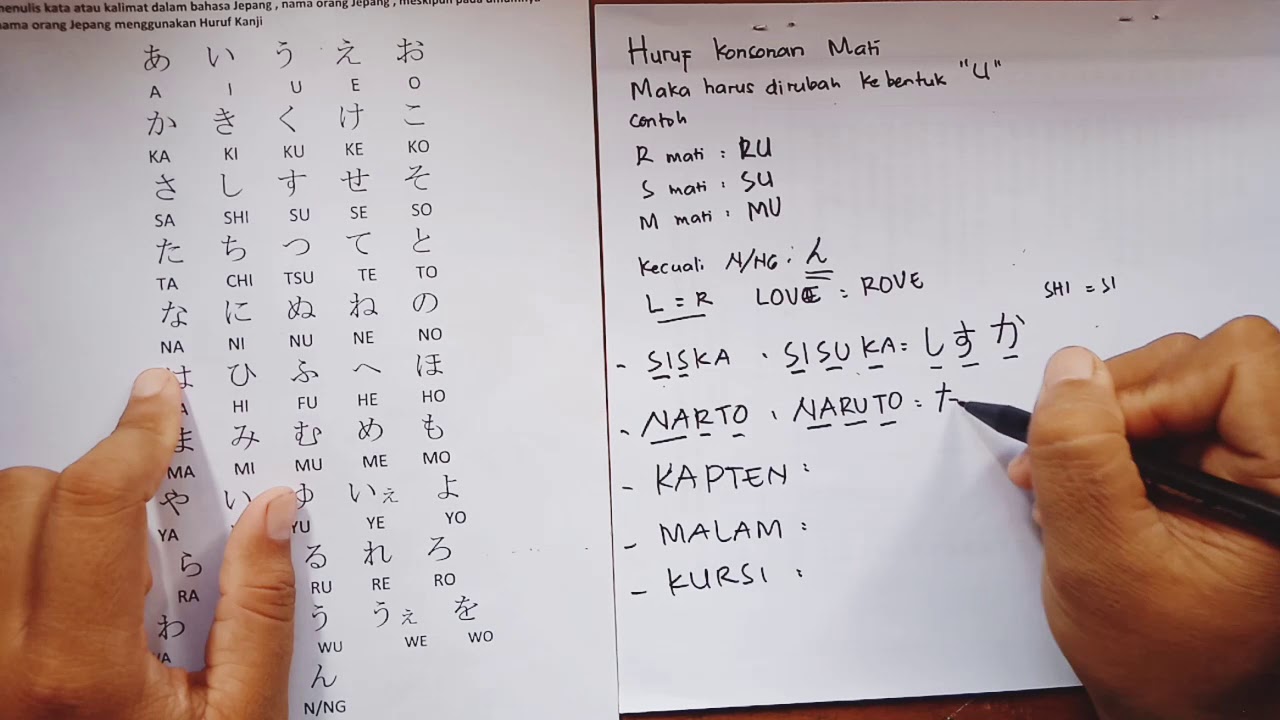 menulis kata atau kalimat dalam bahasa Jepang , nama orang Jepang , meskipun pada umumnya
nama orang Jepang menggunakan Huruf Kanji
あ い う え お
A I U E O
か き く け こ
KA KI KU KE KO
さ し す せ そ
SA SHI SU SE SO
た ち つ て と
TA CHI TSU TE TO
な に ぬ ね の
NA NI NU NE NO
は ひ ふ へ ほ
A HI FU HE HO
ま み む め も
MA MI MU ME MO
や い ゆ いぇ よ
YA YU YE YO
ら る れ ろ
RA RU RE RO
わ う うぇ を
WA WU WE WO
ん
N/NG
Huruf Konsonan Mati
Maka harus dirubah ke bentuk "U"
Contoh
R mati : RU
S mati : SU
M mati : MU
Kecuali N/NG : ん
L = R LOVE = ROVE
SHI = SI
- SISKA : SISUKA = しすか
- NARTO : NARUTO =
- KAPTEN :
- MALAM :
- KURSI :